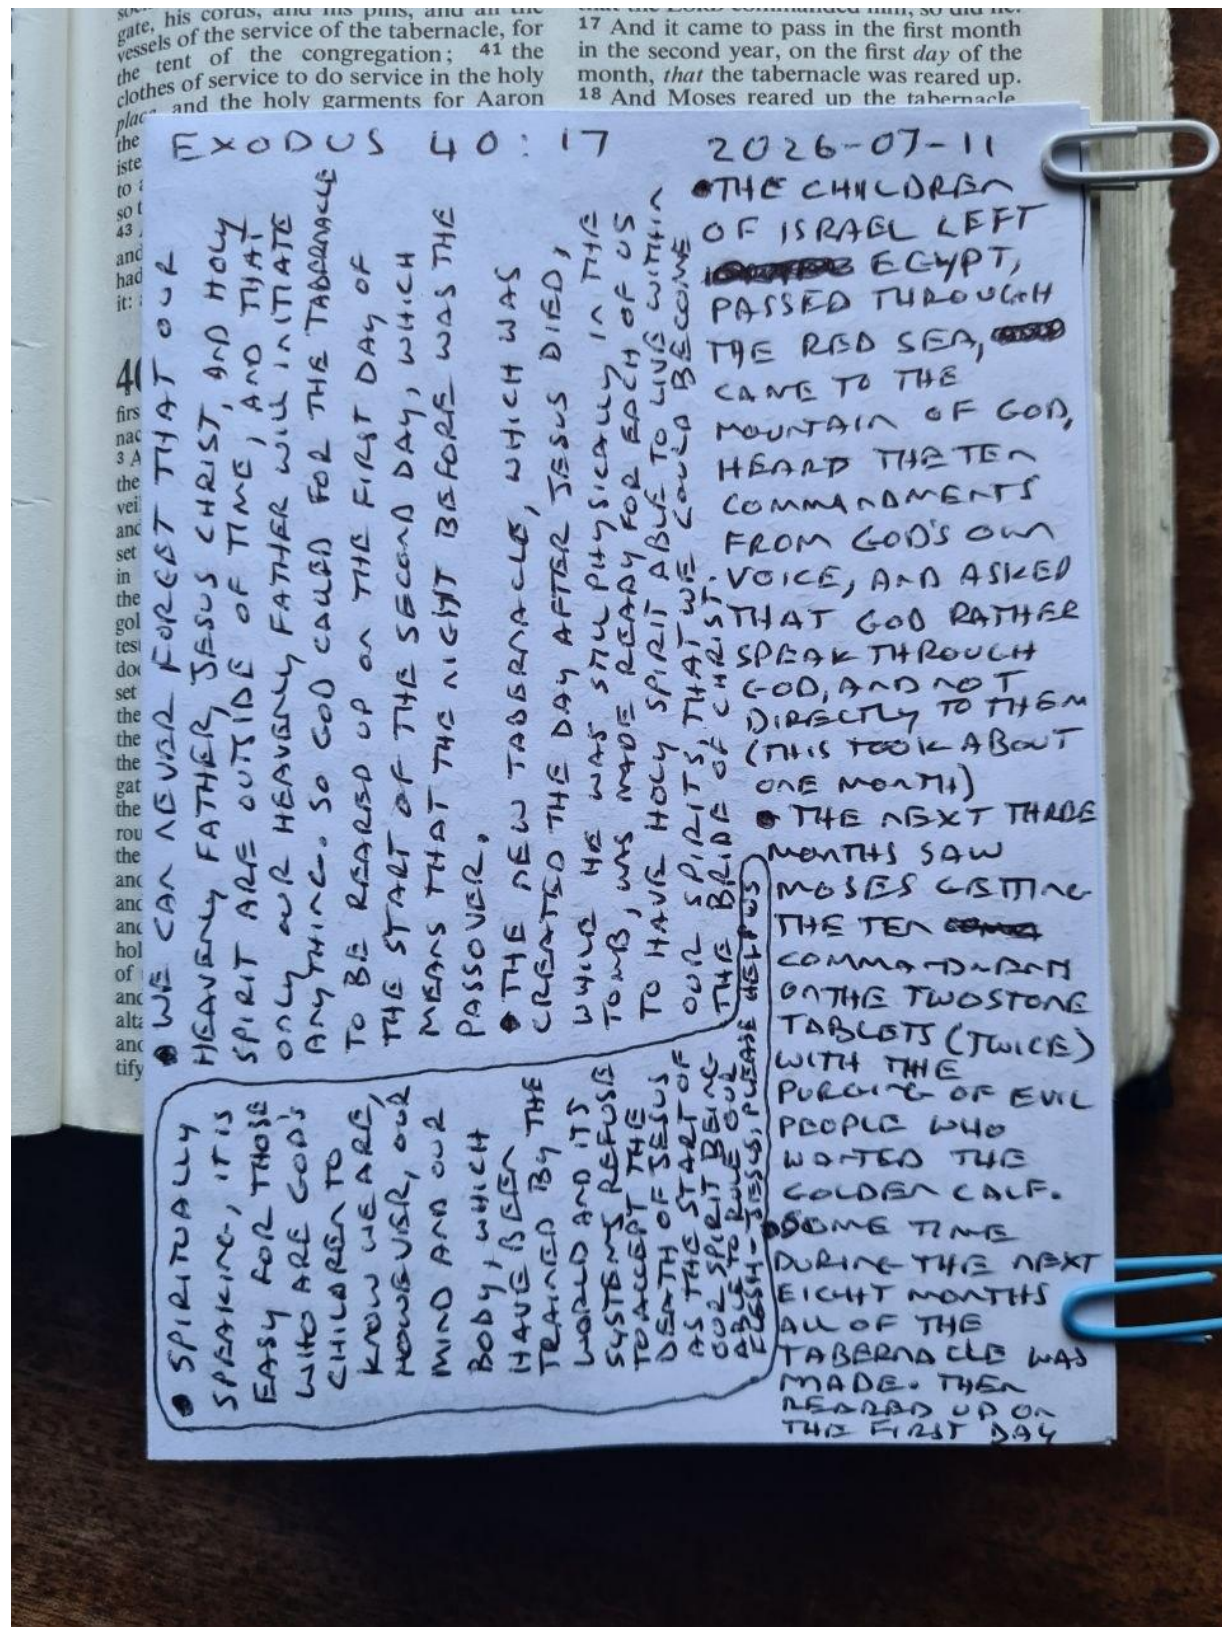 gate, his cords, and his pins, and all the
vessels of the service of the tabernacle, for
the tent of the congregation; 41 the
clothes of service to do service in the holy
place, and the holy garments for Aaron
the
iste
to
so t
43
and
had
it:
40
firs
nac
3 A
the
vei
and
set
in
the
gol
test
doo
set
the
the
the
gat
the
rou
the
and
and
and
hol
of
and
alta
and
tify
17 And it came to pass in the first month
in the second year, on the first day of the
month, that the tabernacle was reared up.
18 And Moses reared up the tabernacle,
EXODUS 40:17
2026-07-11
• THE CHILDREN
OF ISRAEL LEFT
EGYPT,
PASSED THROUGH
THE RED SEA,
CAME TO THE
MOUNTAIN OF GOD,
HEARD THE TEN
COMMANDMENTS
FROM GOD'S OWN
VOICE, AND ASKED
THAT GOD RATHER
SPEAK THROUGH
GOD, AND NOT
DIRECTLY TO THEM
(THIS TOOK ABOUT
ONE MONTH)
• THE NEXT THREE
MONTHS SAW
MOSES GETTING
THE TEN
COMMANDMENTS
ON THE TWO STONE
TABLETS (TWICE)
WITH THE
PURGING OF EVIL
PEOPLE WHO
WANTED THE
GOLDEN CALF.
• SOME TIME
DURING THE NEXT
EIGHT MONTHS
ALL OF THE
TABERNACLE WAS
MADE. THEN
REARED UP ON
THE FIRST DAY
• WE CAN NEVER FORGET THAT OUR
HEAVENLY FATHER, JESUS CHRIST, AND HOLY
SPIRIT ARE OUTSIDE OF TIME, AND THAT
ONLY OUR HEAVENLY FATHER WILL INITIATE
ANYTHING. SO GOD CALLED FOR THE TABERNACLE
TO BE REARED UP ON THE FIRST DAY OF
THE START OF THE SECOND DAY, WHICH
MEANS THAT THE NIGHT BEFORE WAS THE
PASSOVER.
• THE NEW TABERNACLE, WHICH WAS
CREATED THE DAY AFTER JESUS DIED,
WHILE HE WAS STILL PHYSICALLY IN THE
TOMB, WAS MADE READY FOR EACH OF US
TO HAVE HOLY SPIRIT ABLE TO LIVE WITHIN
OUR SPIRITS, THAT WE COULD BECOME
THE BRIDE OF CHRIST.
• SPIRITUALLY
SPEAKING, IT IS
EASY FOR THOSE
WHO ARE GOD'S
CHILDREN TO
KNOW WE ARE,
HOWEVER, OUR
MIND AND OUR
BODY, WHICH
HAVE BEEN
TRAINED BY THE
WORLD AND ITS
SYSTEMS REFUSE
TO ACCEPT THE
DEATH OF JESUS
AS THE START OF
OUR SPIRIT BEING
ABLE TO RULE OUR
FLESH - JESUS, PLEASE HELP US